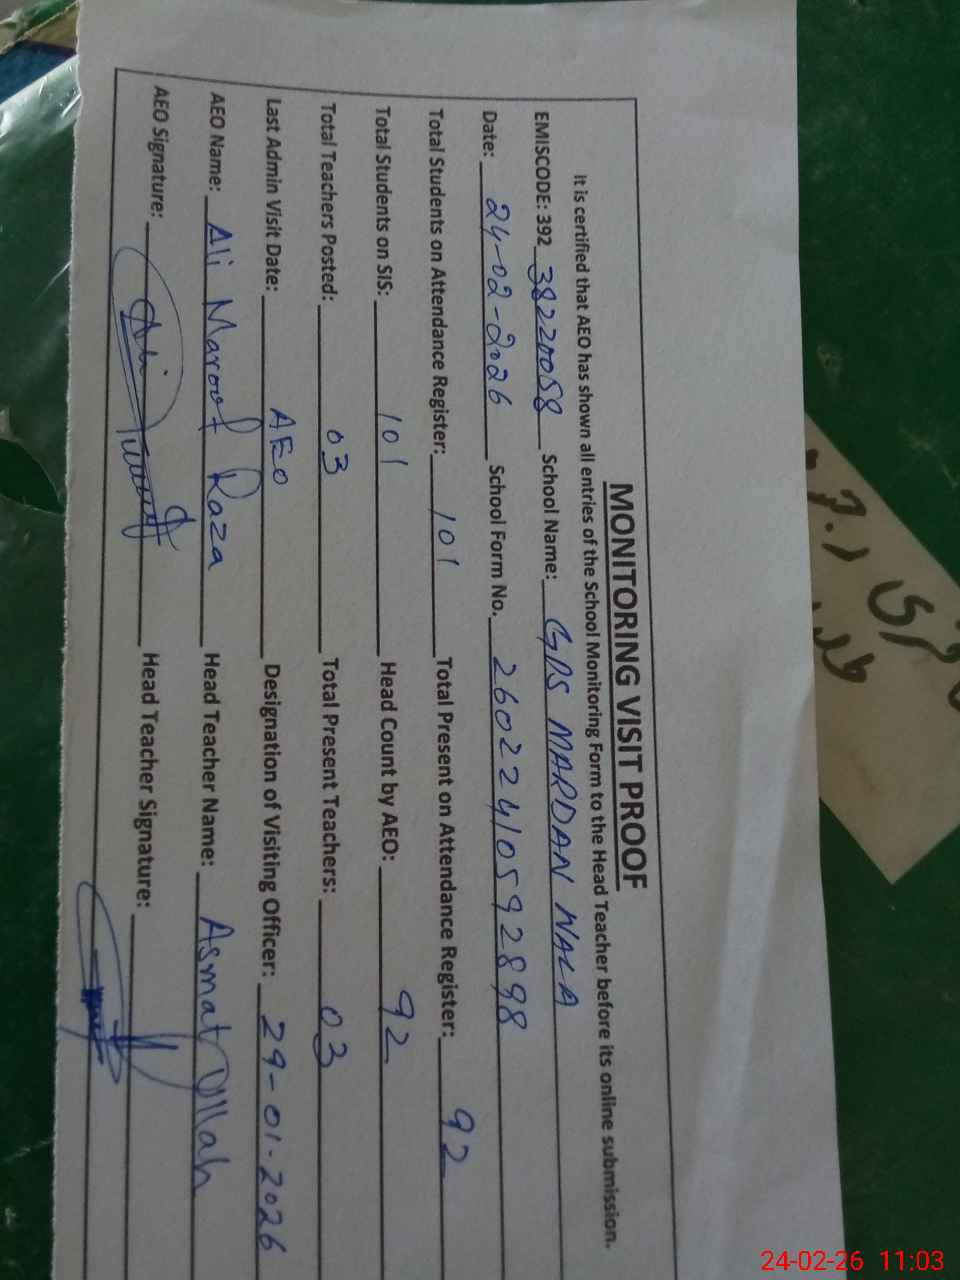 MONITORING VISIT PROOF
It is certified that AEO has shown all entries of the School Monitoring Form to the Head Teacher before its online submission.
EMISCODE: 392 38220058 School Name: GPS MARDAN WALA
Date: 24-02-2026 School Form No. 260224105928 98
Total Students on Attendance Register: 101 Total Present on Attendance Register: 92
Total Students on SIS: 101 Head Count by AEO: 92
Total Teachers Posted: 03 Total Present Teachers: 03
Last Admin Visit Date: AEO Designation of Visiting Officer: 29-01-2026
AEO Name: Ali Maroof Raza Head Teacher Name: Asmat Ullah
AEO Signature: Head Teacher Signature:
24-02-26 11:03